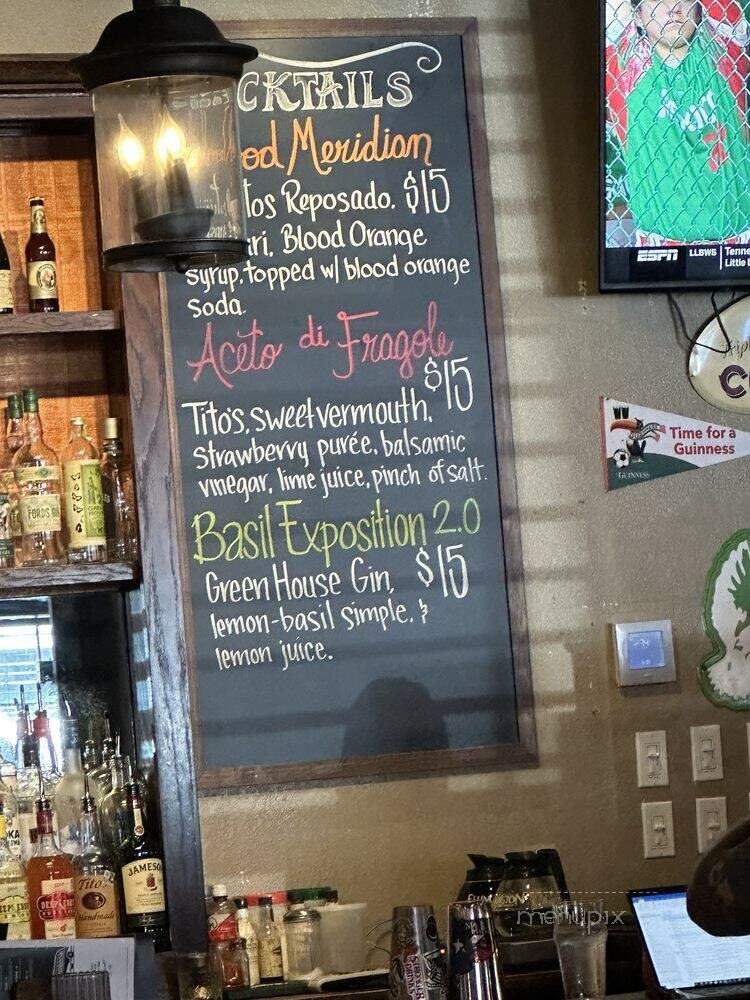 CKTAILS
od Meridian
tos Reposado. $15
ri, Blood Orange
syrup, topped w/ blood orange
soda.
Aceto di Fragole
$15
Tito's, sweet vermouth,
strawberry purée, balsamic
vinegar, lime juice, pinch of salt.
Basil Exposition 2.0
Green House Gin, $15
lemon-basil simple, &
lemon juice.
ESPN LLBWS Tenne
Little L
Time for a
Guinness
GUINNESS
FORDS GIN
Tito's
Handmade
DEEP EDDY
JAMESO
menupix